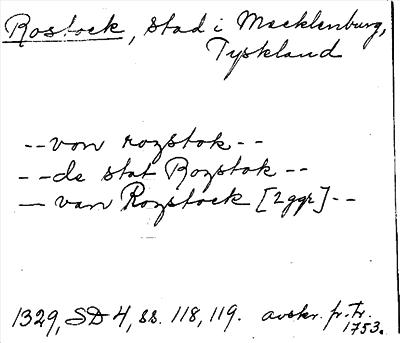 Rostock, stad i Mecklenburg,
Tyskland
--von rozstok--
--de stat Rozstok--
-- van Rozstock [2ggr]--
1329, SD 4, ss. 118, 119. avskr. fr. tr.
1753.